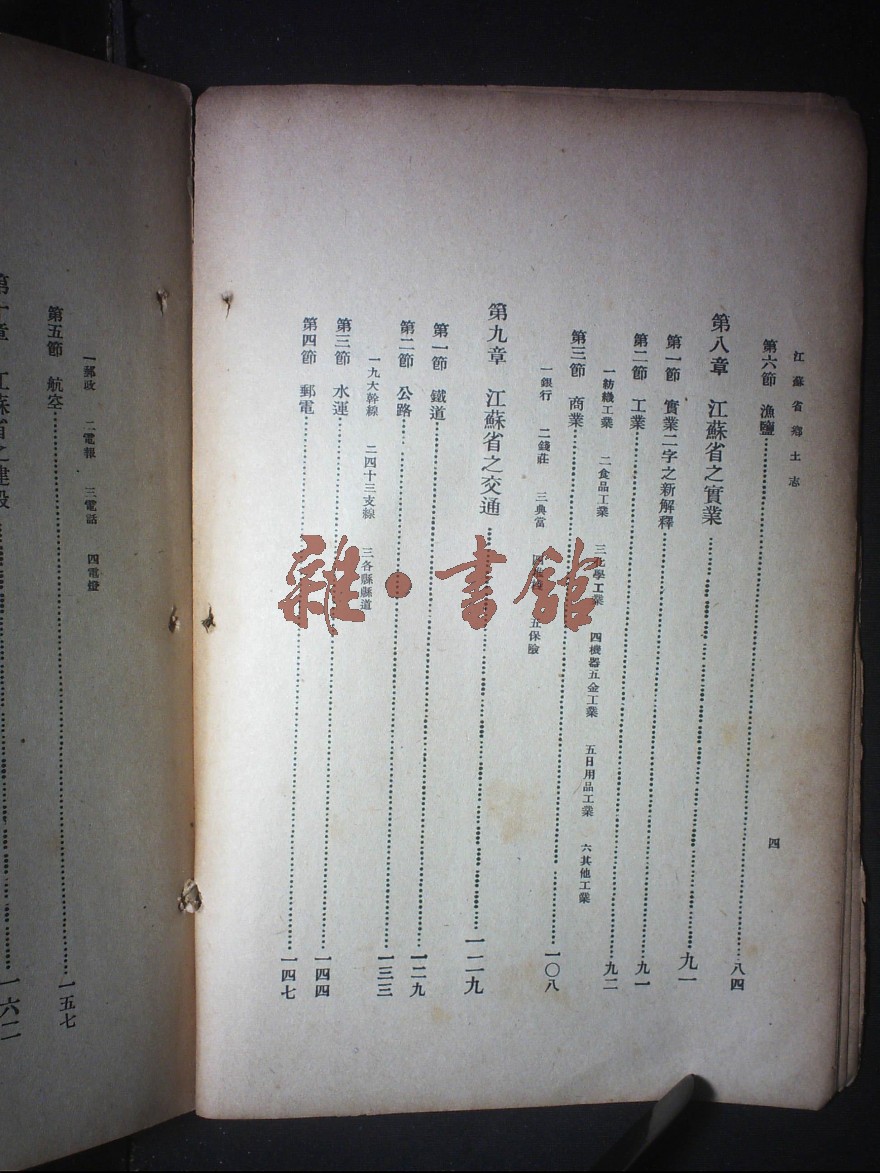 江蘇省鄉土志
四
第六節 漁鹽 八四
第八章 江蘇省之實業 九一
第一節 實業二字之新解釋 九一
第二節 工業 九二
一紡織工業 二食品工業 三化學工業 四機器五金工業 五日用品工業 六其他工業
第三節 商業 一〇八
一銀行 二錢莊 三典當 五保險
第九章 江蘇省之交通 一二九
第一節 鐵道 一二九
第二節 公路 一三三
一九大幹線 二四十三支線 三各縣縣道
第三節 水運 一四四
第四節 郵電 一四七
一郵政 二電報 三電話 四電燈
第五節 航空 一五七
第十章 江蘇省之建設 一六二
雜·書館